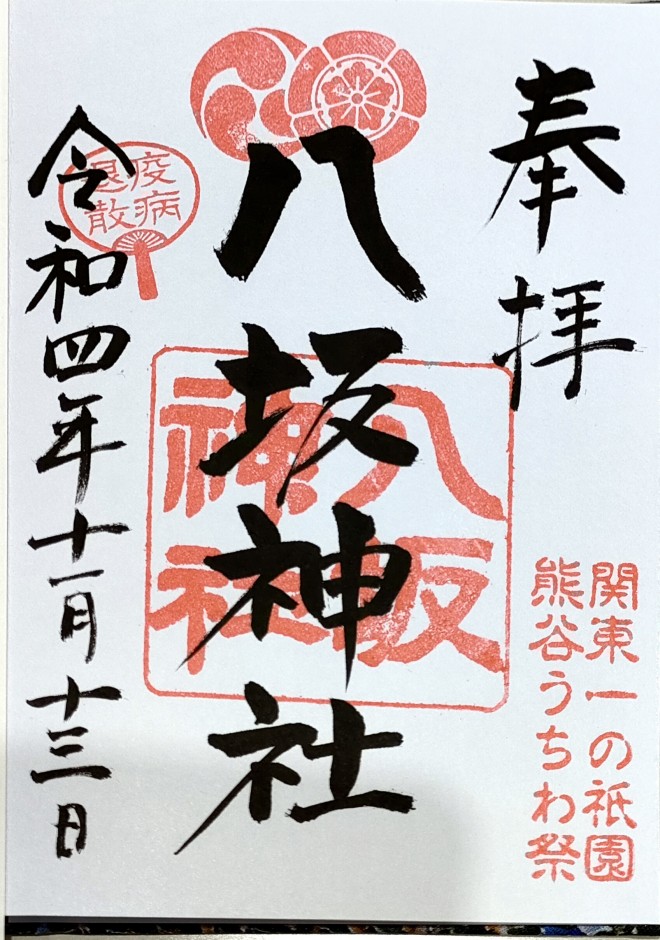 奉拝
関東一の祇園
熊谷うちわ祭
八坂神社
八坂
神社
疫病
退散
令和四年十一月十三日